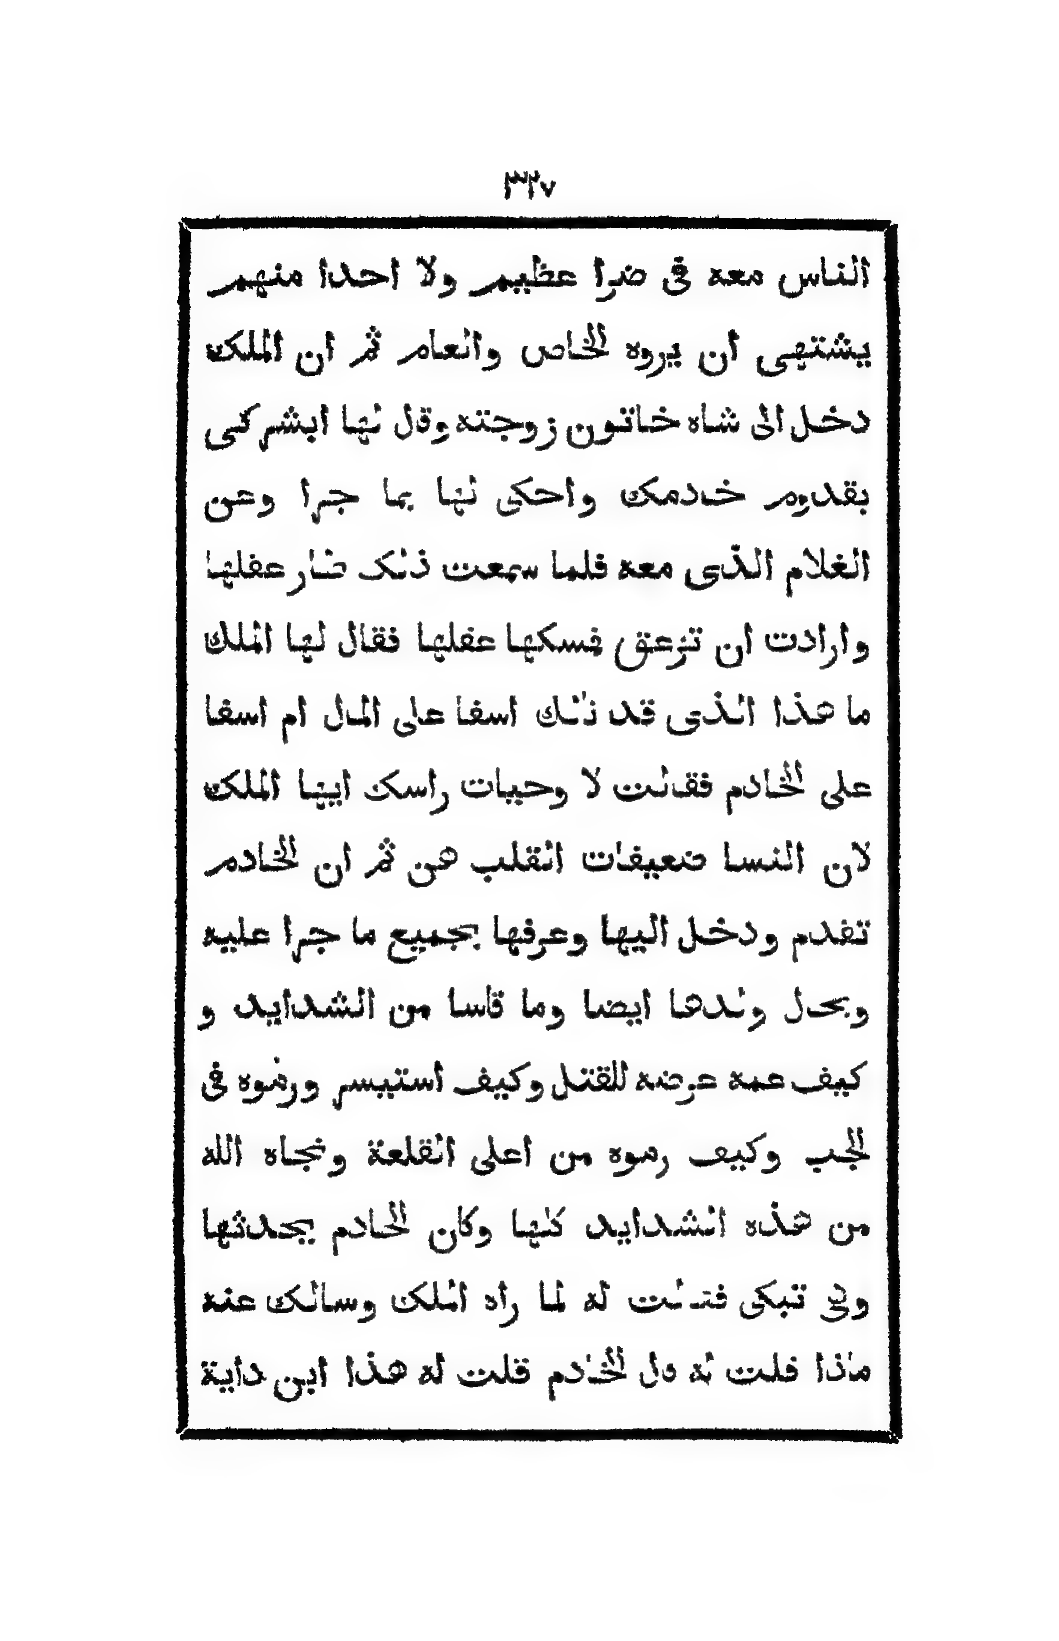 ٣٢٧
الناس معه فى ضرا عظيم ولا احدا منهم
يشتهى ان يروه الخاص والعام ثم ان الملك
دخل الى شاه خاتون زوجته وقال لها ابشركى
بقدوم خادمك واحكى لها بما جرا وعن
الغلام الذى معه فلما سمعت ذلك ضار عقلها
وارادت ان تزعق فسكها عقلها فقال لها الملك
ما هذا الذى قد نالك اسفا على المال ام اسفا
على الخادم فقالت لا وحيات راسك ايها الملك
لان النسا ضعيفات القلب هن ثم ان الخادم
تقدم ودخل اليها وعرفها بجميع ما جرا عليه
وبحال ولدها ايضا وما قاسا من الشدايد و
كيف عمه عرضه للقتل وكيف استيسر ورموه فى
الجب وكيف رموه من اعلى القلعة ونجاه الله
من هذه الشدايد كلها وكان الخادم يحدثها
وهى تبكى فقالت له لما راه الملك وسالك عنه
ماذا قلت له قال الخادم قلت له هذا ابن داية